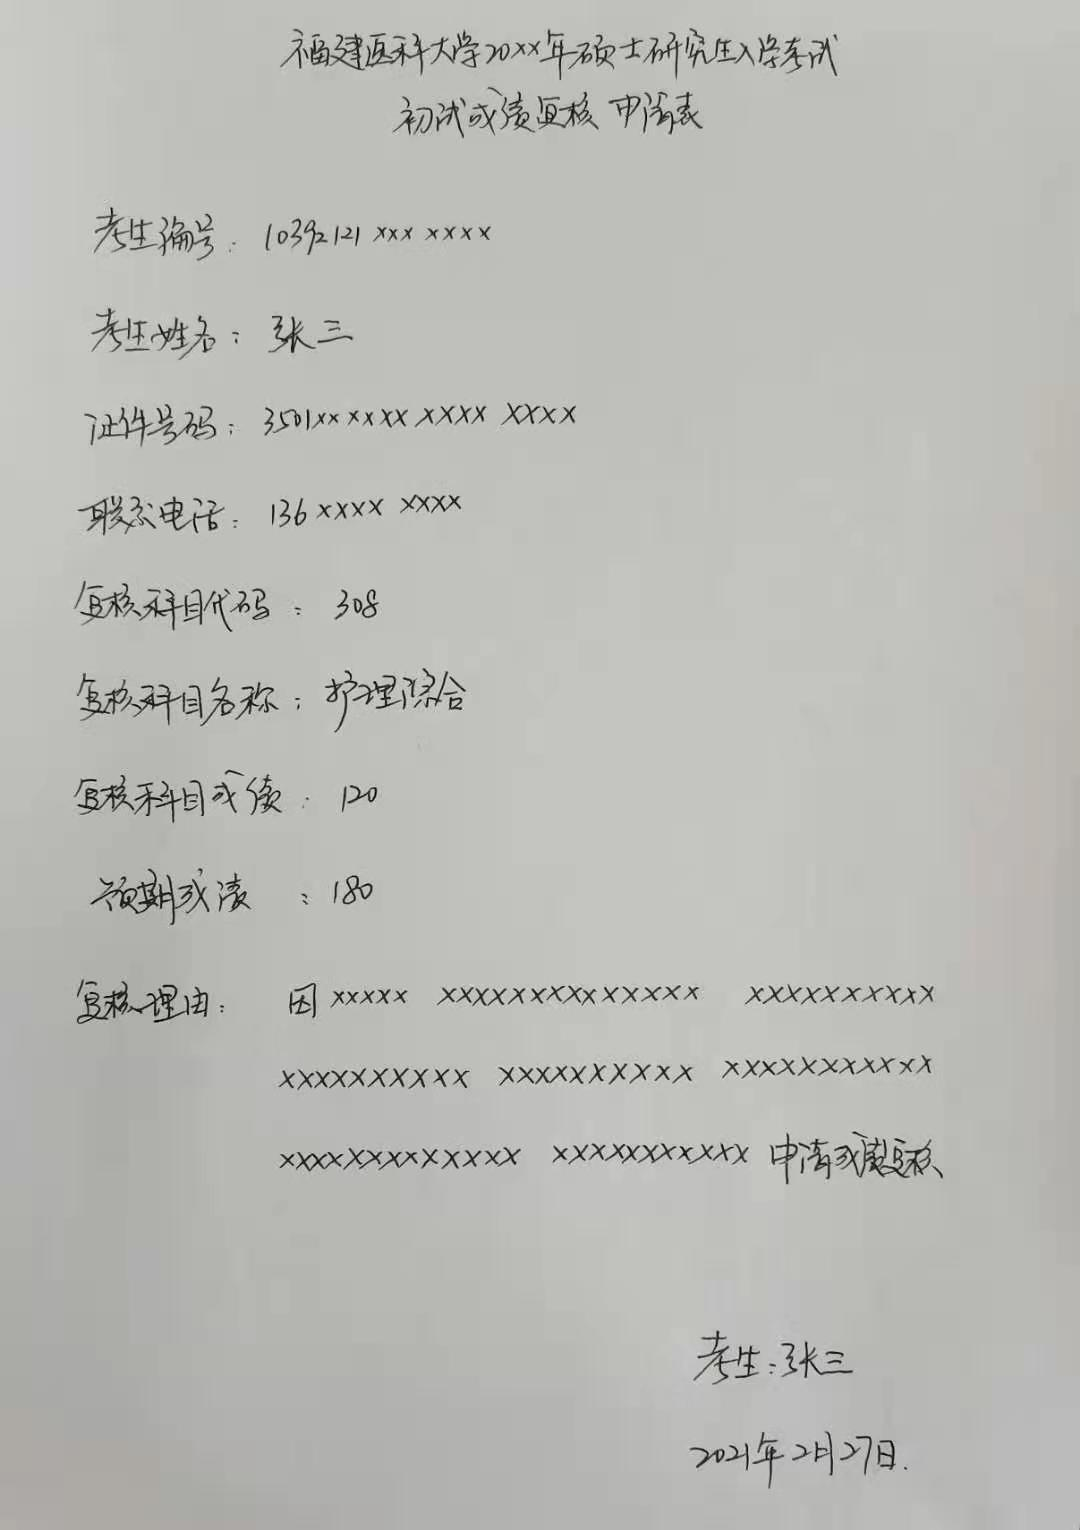 福建医科大学20xx年硕士研究生入学考试
初试成绩复核申请表
考生编号：10392121 xxx xxxx
考生姓名：张三
证件号码：3501xx xxxx xxxx xxxx
联系电话：136 xxxx xxxx
复核科目代码：308
复核科目名称：护理综合
复核科目成绩：120
预期成绩：180
复核理由：因xxxxx xxxxxxxxxxxxxx xxxxxxxxxxx
xxxxxxxxxxx xxxxxxxxxxx xxxxxxxxxxxx
xxxxxxxxxxxxxx xxxxxxxxxxxx 申请成绩复核
考生：张三
2021年2月27日.